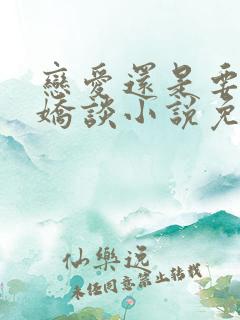 戀愛還是要
嬌談小說免
仙樂說
未經同意禁止轉載